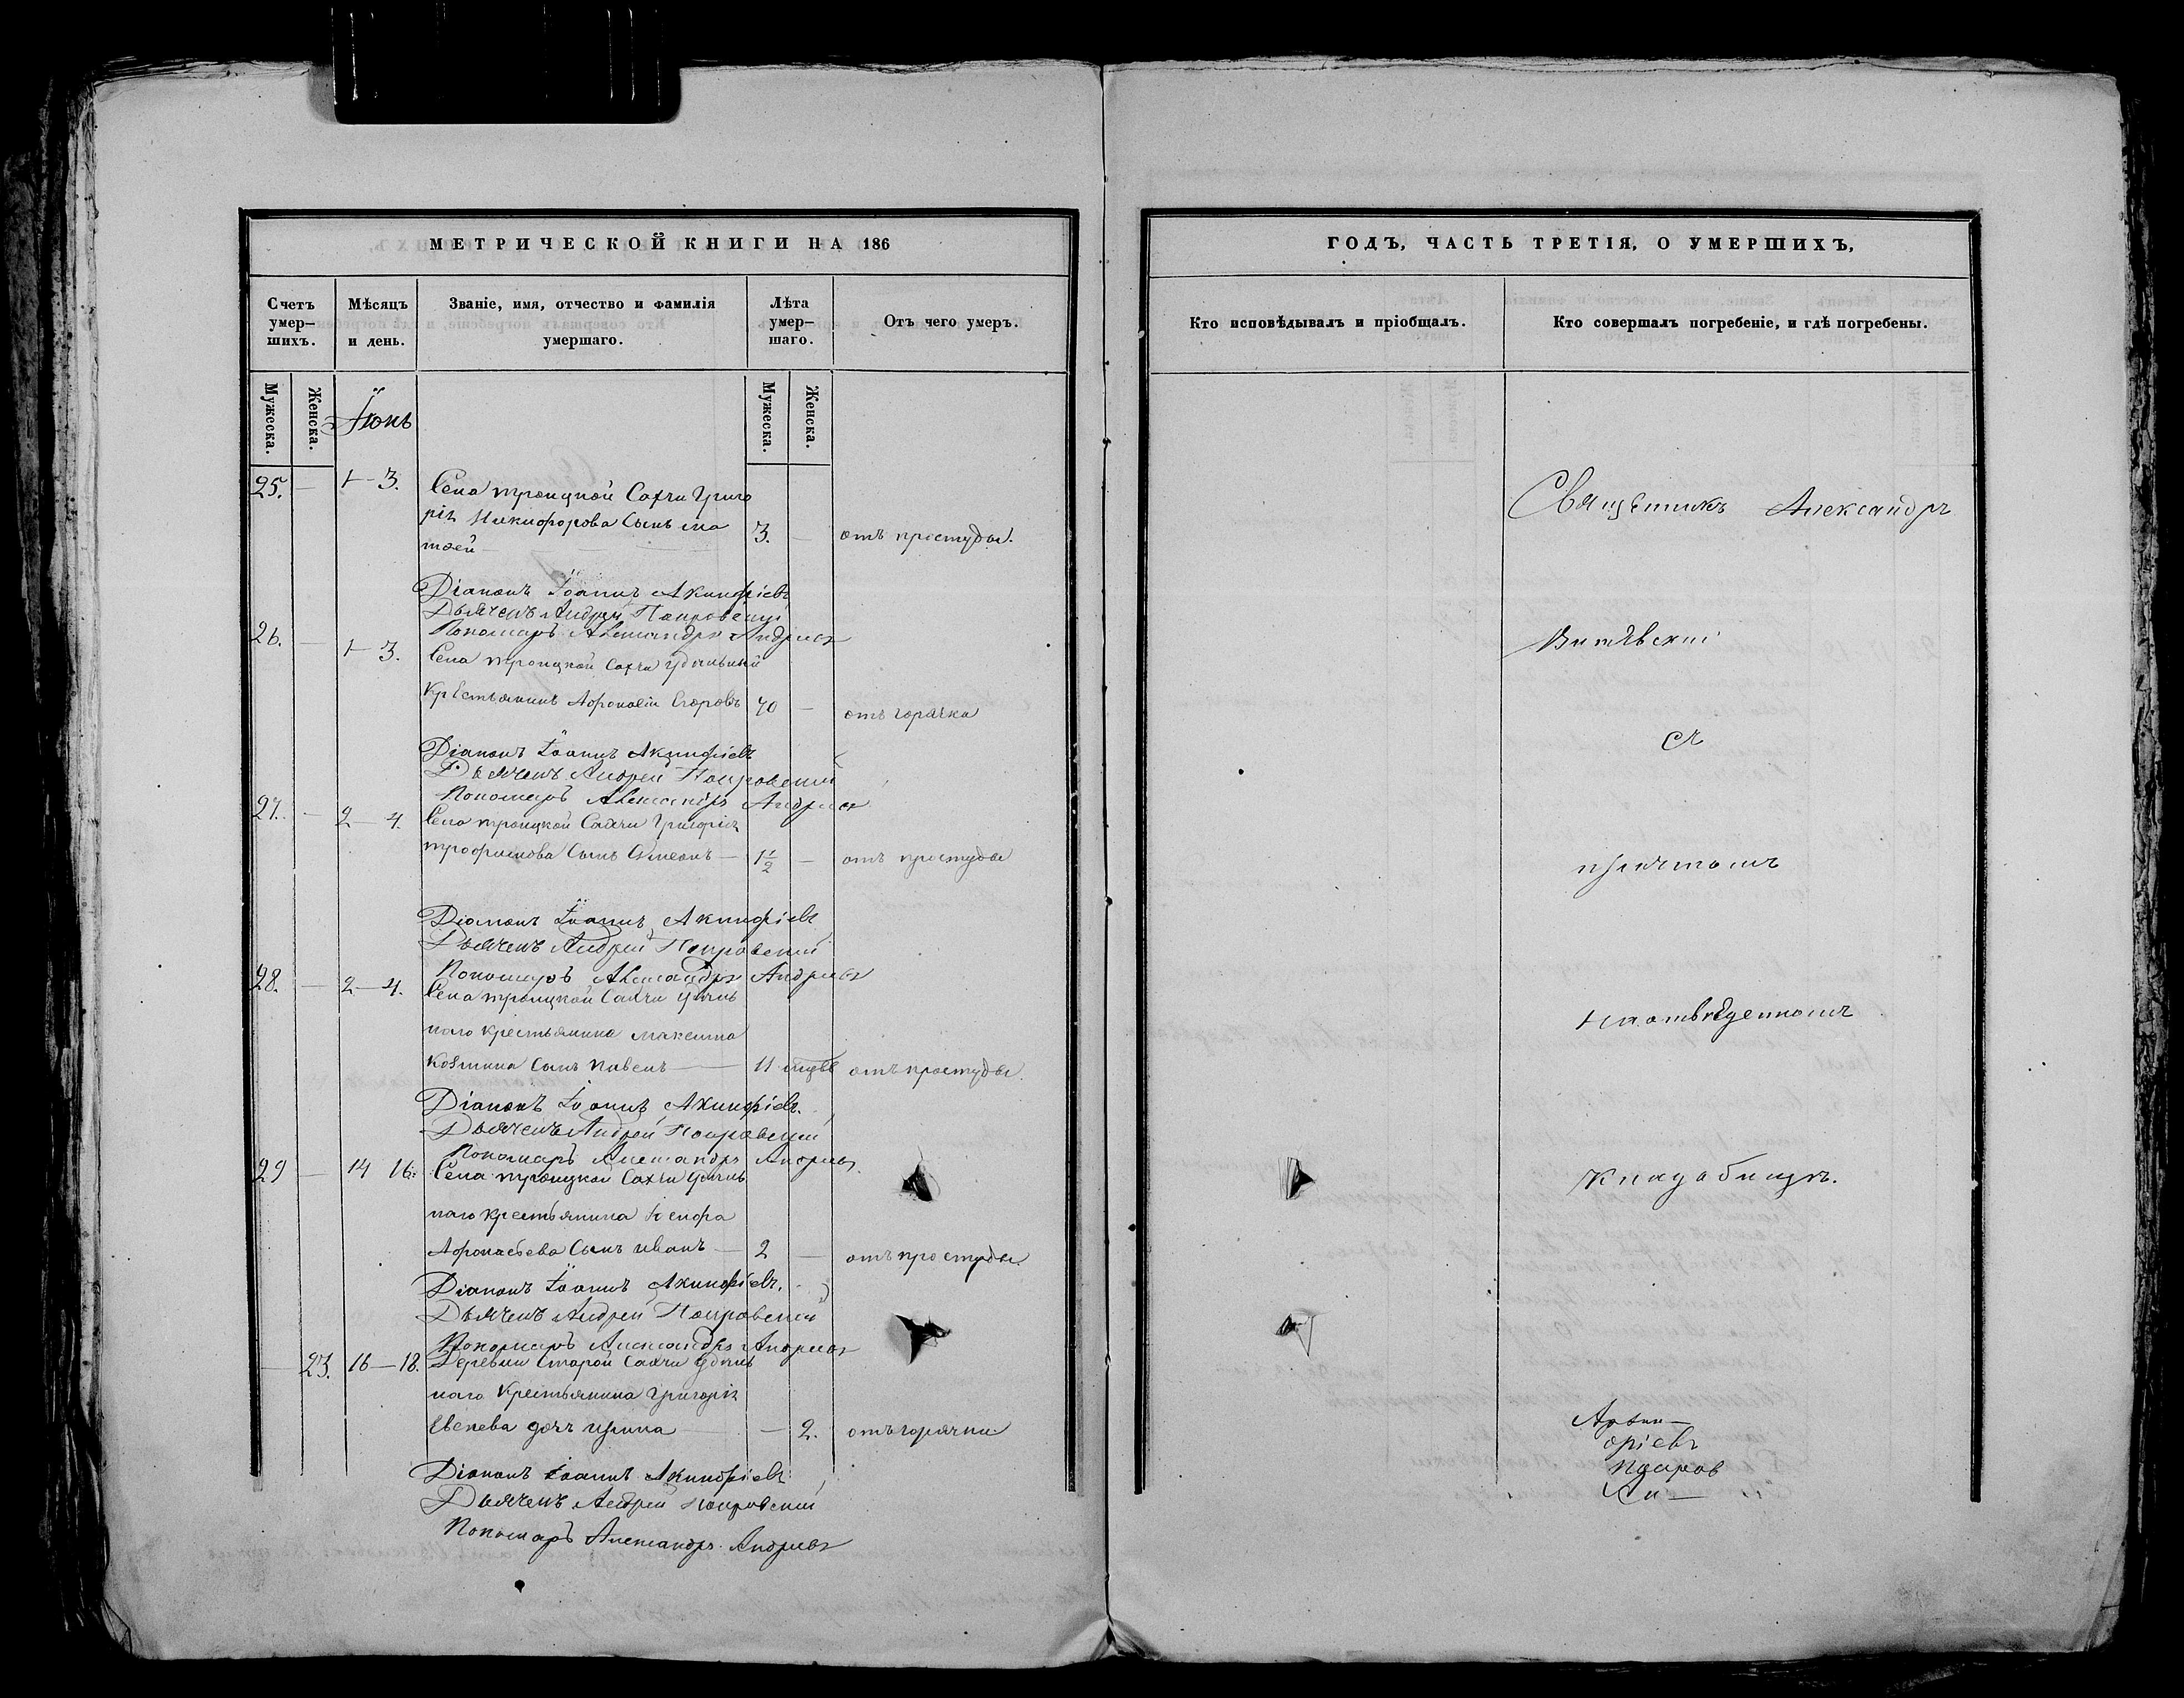 МЕТРИЧЕСКОЙ КНИГИ НА 186
Счетъ умер-шихъ.
Мѣсяцъ и день.
Званіе, имя, отчество и фамилія умершаго.
Лѣта умер-шаго.
Отъ чего умеръ.
Мужеска.
Женска.
Мужеска.
Женска.
Іюнь
25. — 1 — 3. Села троицкой Сахчи Григо
рія Никифорова Сынъ ма
твей — 3. — отъ простуды.
Діаконъ Іоаннъ Акинфіевъ
Дьячекъ Андрей Покровскій
Пономарь Александръ Андриевъ
26. — 1 — 3. Села троицкой Сахчи удѣльный
Крестьянинъ Афонасій Егоровъ 70 — отъ горячки
Діаконъ Іоаннъ Акинфіевъ
Дьячекъ Андрей Покровскій
Пономарь Александръ Андриевъ
27. — 2 — 4. Села троицкой Сахчи Григорія
трофимова Сынъ Симеонъ — 1 1/2 — отъ простуды
Діаконъ Іоаннъ Акинфіевъ
Дьячекъ Андрей Покровскій
Пономарь Александръ Андриевъ
28. — 2 — 4. Села троицкой Сахчи удѣль
наго крестьянина максима
Козмина Сынъ Павелъ — 11 отъ простуды.
Діаконъ Іоаннъ Акинфіевъ.
Дьячекъ Андрей Покровскій
Пономарь Александръ Андриевъ.
29 — 14 16. Села троицкой Сахчи удѣль
наго крестьянина
Афонасьева Сынъ иванъ — 2 — отъ простуды.
Діаконъ Іоаннъ Акинфіевъ.
Дьячекъ Андрей Покровскій
Пономарь Александръ Андриевъ
— 23. 16 — 18. Деревни Старой Сахчи удѣль
наго Крестьянина Григорія
дочь ирина — — 2. отъ горячки
Діаконъ Іоаннъ Акинфіевъ
Дьячекъ Андрей Покровскій
Пономарь Александръ Андриевъ
ГОДЪ, ЧАСТЬ ТРЕТІЯ, О УМЕРШИХЪ,
Кто исповѣдывалъ и пріобщалъ.
Кто совершалъ погребеніе, и гдѣ погребены.
Священникъ Александръ
Витѣвскій
съ
причтомъ
на отведенномъ
кладбищѣ.